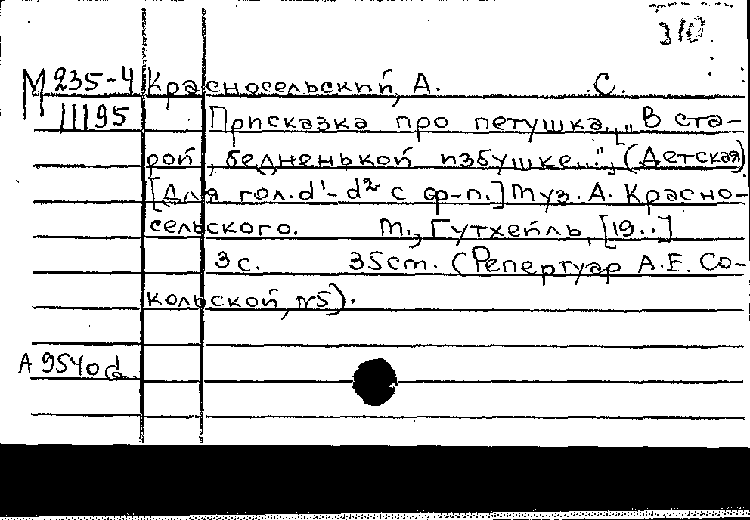 310.
М 235-4 Красносельский, А. С.
11195 Присказка про петушка. "В ста-
рой, бедненькой избушке..." (Детская)
[Для гол. d¹- d² с ф-п.] Муз. А. Красно-
сельского. М., Гутхейль, [19..]
3 с. 35 cm. (Репертуар А. Е. Со-
кольской, №5).
А 9540